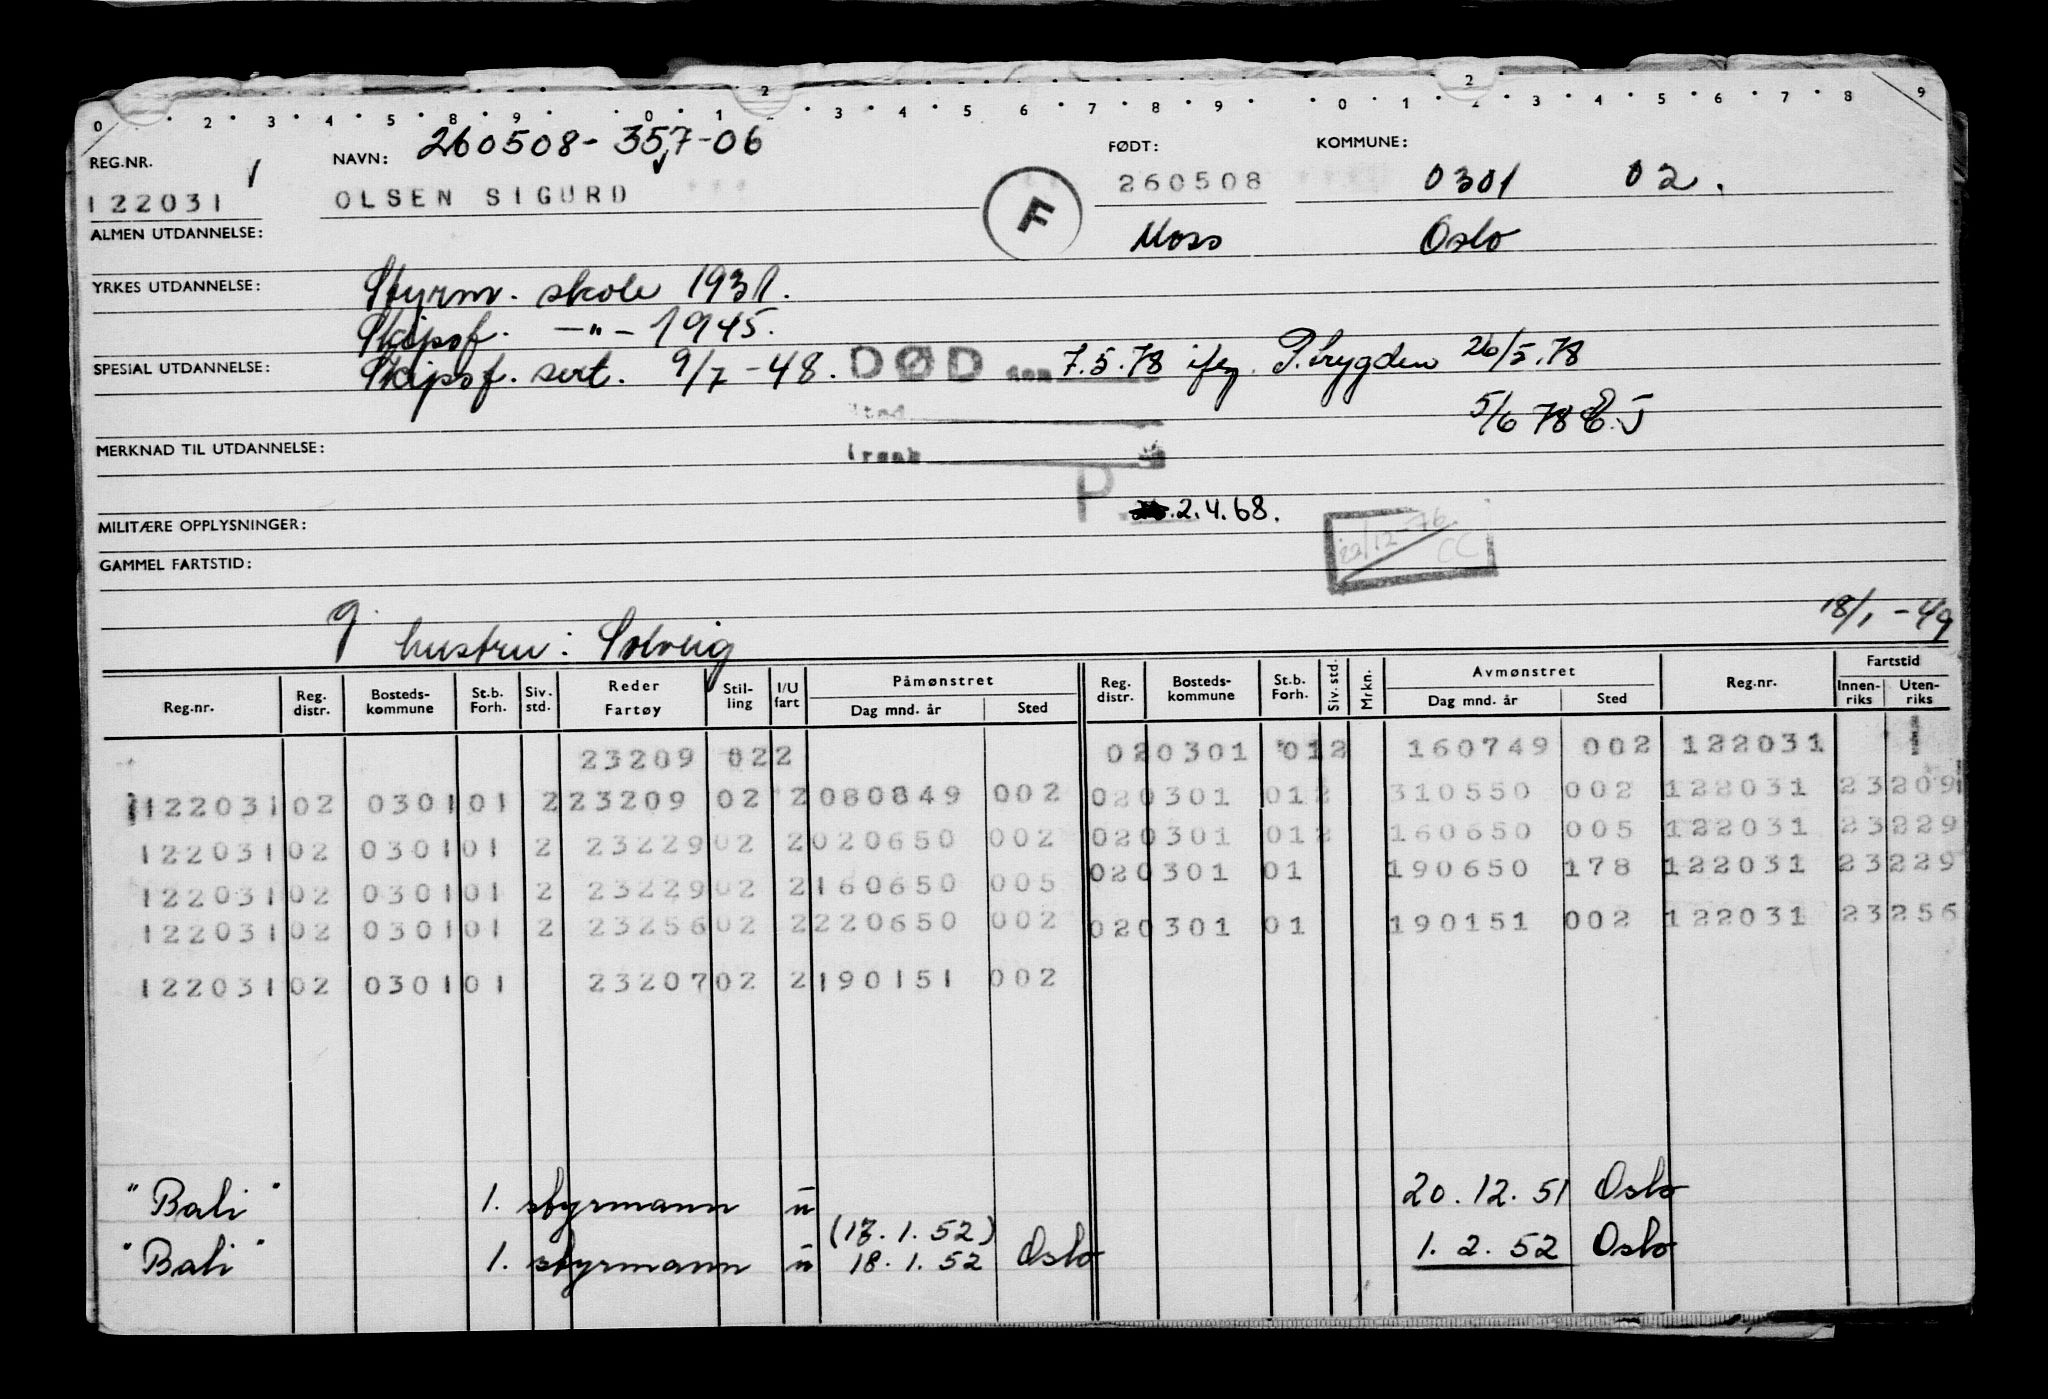 0 . 2 . 3 . 4 . 5 . 8 . 9 . . 0 . 1 2 . 3 . 4 . 5 . 6 . 7 . 8 . 9 . . 0 . 1 . 2 . 3 . 4 . 5 . 6 . 7 . 8 9
REG.NR. NAVN: 260508-357-06 FØDT: KOMMUNE:
122031 OLSEN SIGURD F 260508 0301 02.
ALMEN UTDANNELSE: Moss Oslo
YRKES UTDANNELSE: Styrm. skole 1931.
Skipsf. —"— 1945.
SPESIAL UTDANNELSE: Skipsf. sert. 9/7-48. DØD den 7.5.78 iføg. P.trygden 26/5.78
Sted 5/6 78 E.J
MERKNAD TIL UTDANNELSE: Årsak
P. 2.4.68.
MILITÆRE OPPLYSNINGER: 22/12-76 CC
GAMMEL FARTSTID:
g. hustru: Solveig 18/1-49
Reg.nr. Reg. distr. Bosteds-kommune St.b. Forh. Siv. std. Reder Fartøy Stil-ling I/U fart Påmønstret Dag mnd. år Sted Reg. distr. Bosteds-kommune St.b. Forh. Siv. std. Mrkn. Avmønstret Dag mnd. år Sted Reg.nr. Fartstid Innen-riks Uten-riks
23209 022 020301 012 160749 002 122031
122031 02 0301 01 2 23209 02 2 080849 002 020301 012 310550 002 122031 23209
122031 02 0301 01 2 23229 02 2 020650 002 020301 012 160650 005 122031 23229
122031 02 0301 01 2 23229 02 2 160650 005 020301 01 190650 178 122031 23229
122031 02 0301 01 2 23256 02 2 220650 002 020301 01 190151 002 122031 23256
122031 02 0301 01 23207 02 2 190151 002
"Bali" 1. styrmann u 20.12.51 Oslo
(17.1.52)
"Bali" 1. styrmann u 18.1.52 Oslo 1.2.52 Oslo